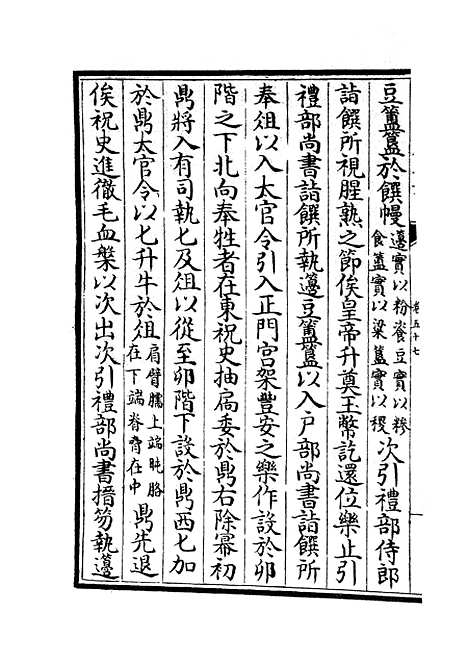 豆簠簋於饌幔籩實以粉餈豆實以糝食簋實以粱簠實以稷次引禮部侍郎
詣饌所視腥熟之節俟皇帝升奠玉幣訖還位樂止引
禮部尚書詣饌所執籩豆簠簋以入戶部尚書詣饌所
奉俎以入太官令引入正門宮架豐安之樂作設於卯
階之下北向奉牲者在東祝史抽扃委於鼎右除冪初
鼎將入有司執匕及俎以從至卯階下設於鼎西匕加
於鼎太官令以匕升牛於俎肩臂臑上端肫胳在下端脊脅在中鼎先退
俟祝史進徹毛血槃以次出次引禮部尚書搢笏執籩
卷五十七